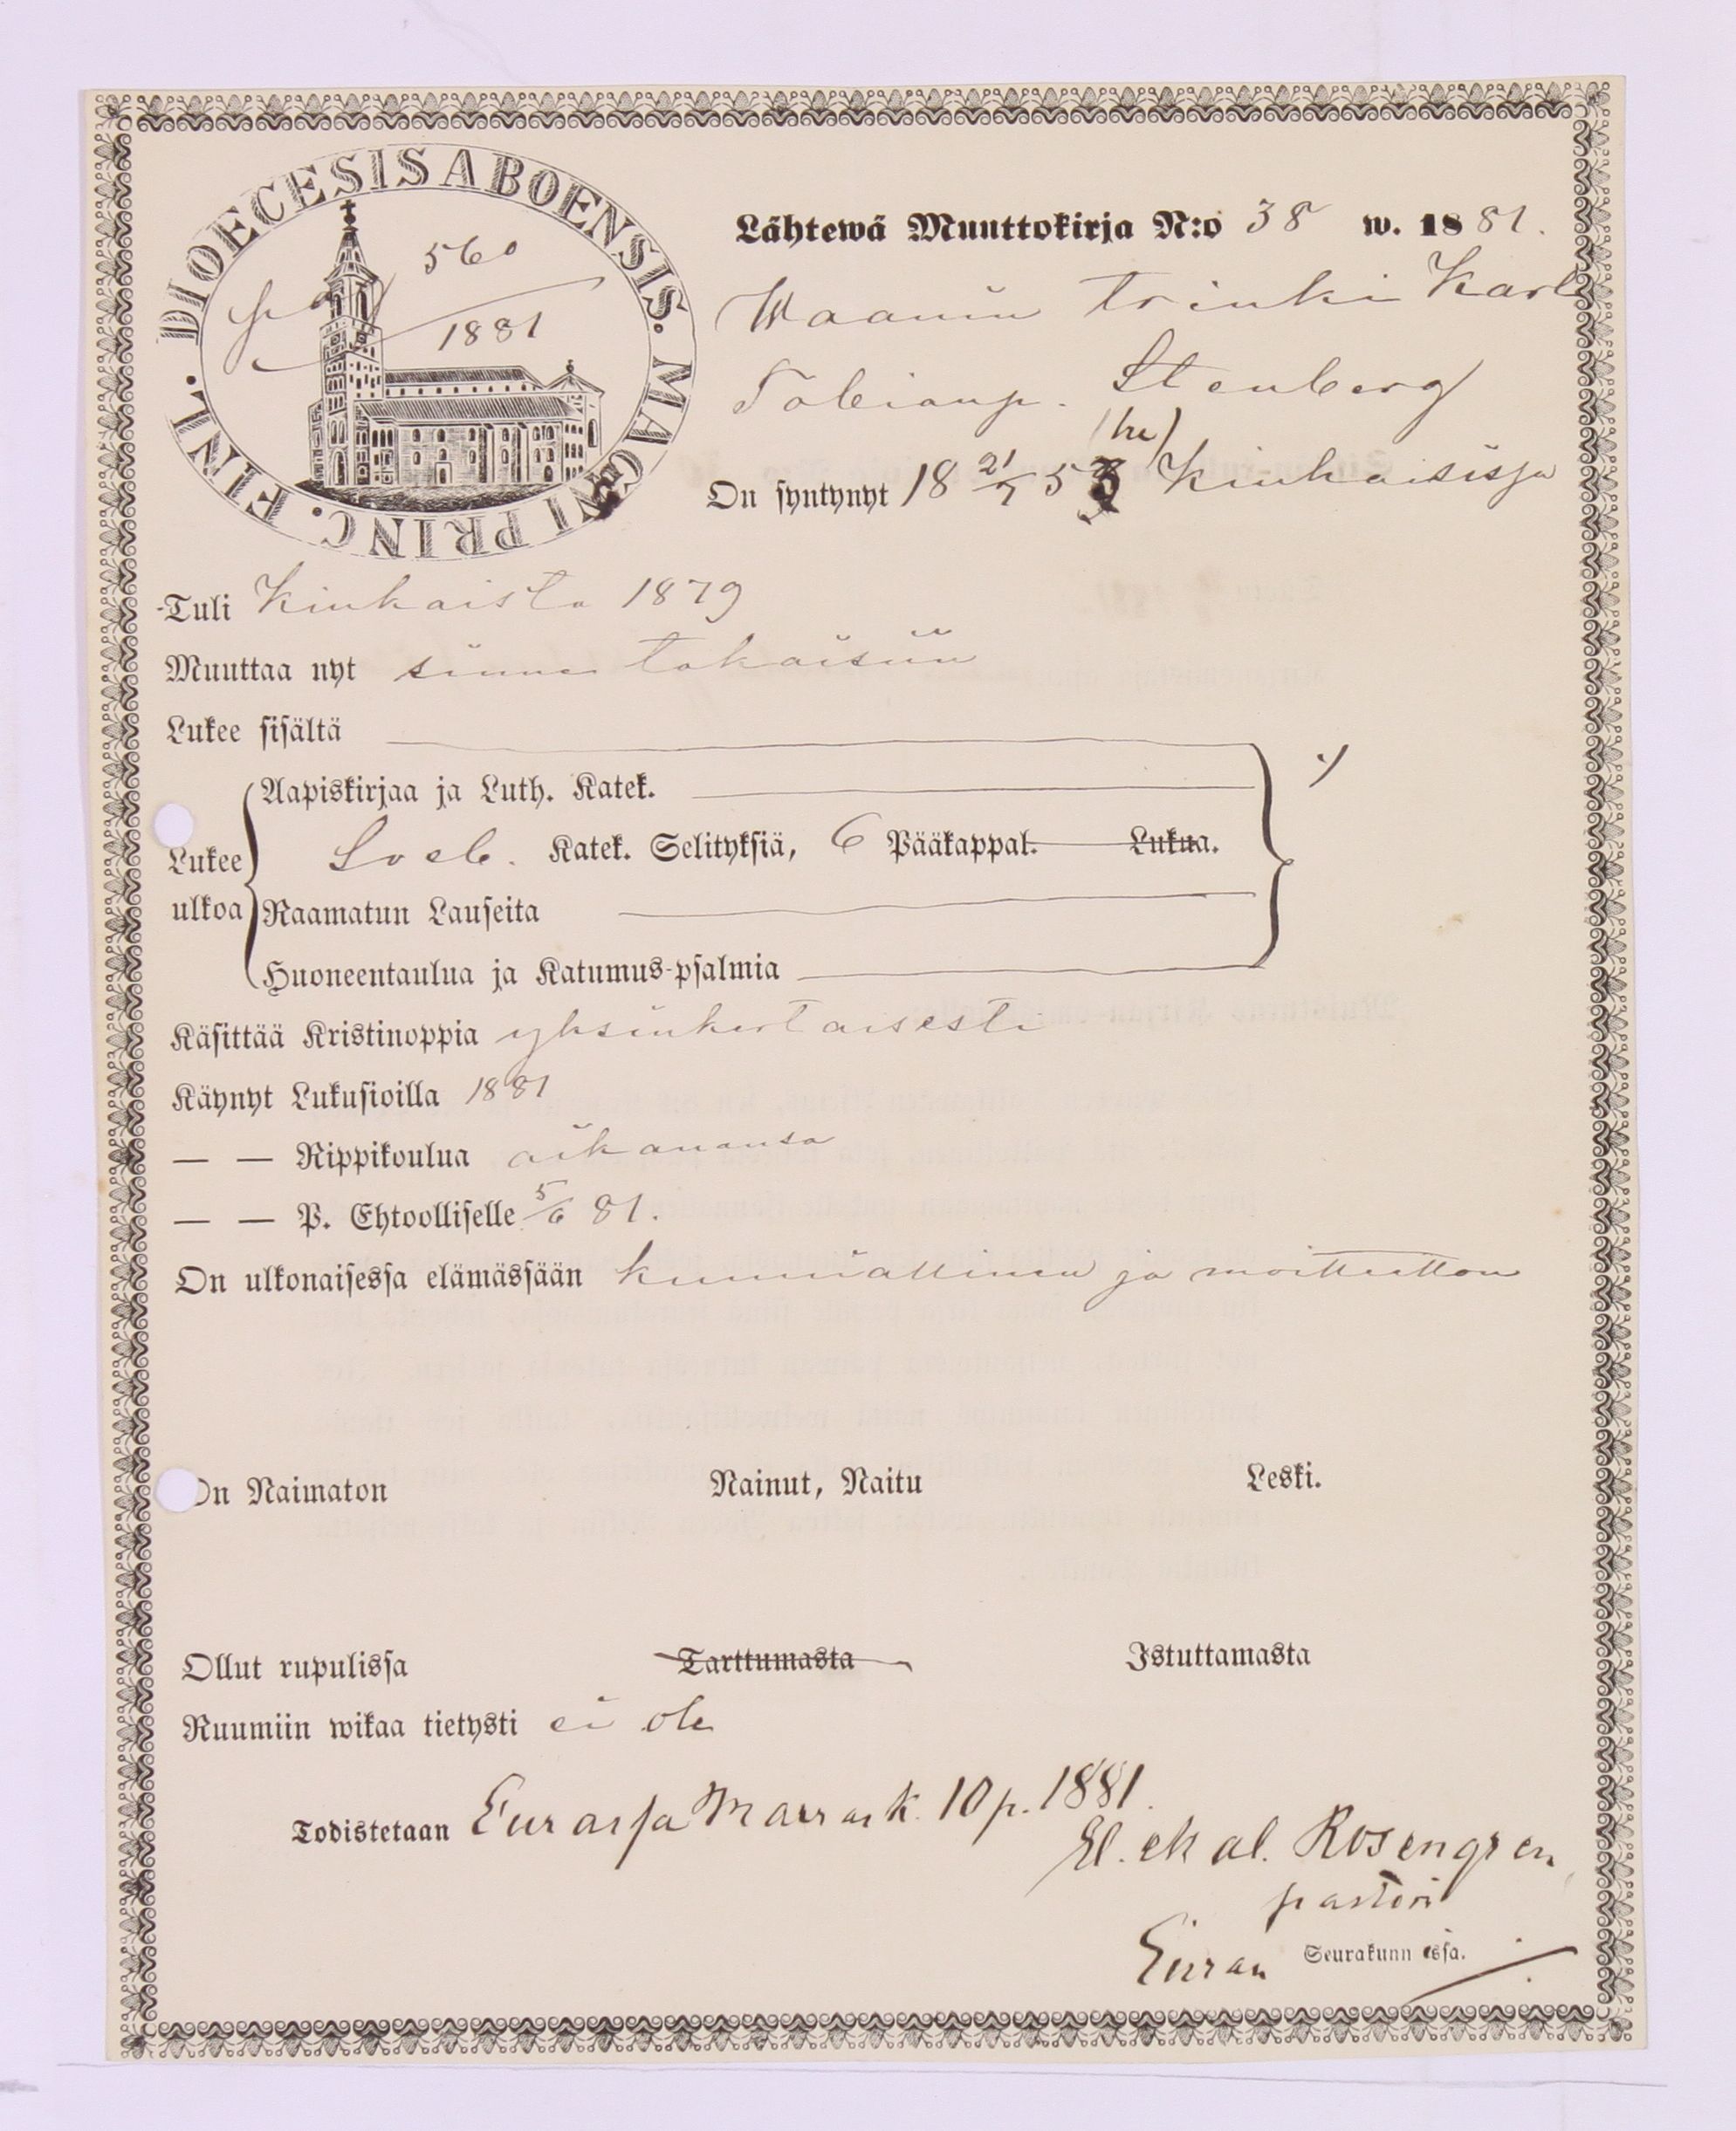 DIOECESIS ABOENSIS. MAGNI PRINC. FINL.
pag 560
1881
Lähtewä Muuttokirja N:o 38 w. 1881.
Waanin trinki Karl
Tobianp. Stenberg
On syntynyt 18 21/7 53 (tre) Kiukaisissa
Tuli Kiukaista 1879
Muuttaa nyt sinne takaisiin
Lukee sisältä
Aapiskirjaa ja Luth. Katek.
Lukee ulkoa
Sveb. Katek. Selityksiä, 6 Pääkappal. Lukua.
Raamatun Lauseita
Huoneentaulua ja Katumus-psalmia
Käsittää Kristinoppia yksinkertaisesti
Käynyt Lukusioilla 1881
— — Rippikoulua aikanansa
— — P. Ehtoolliselle 5/6 81.
On ulkonaisessa elämässään kunniallinen ja moitteetton
On Naimaton Nainut, Naitu Leski.
Ollut rupulissa Tarttumasta Istuttamasta
Ruumiin wikaa tietysti ei ole
Todistetaan Eurassa Marrask. 10 p. 1881.
Rosengren
pastori
Euran Seurakunnassa.